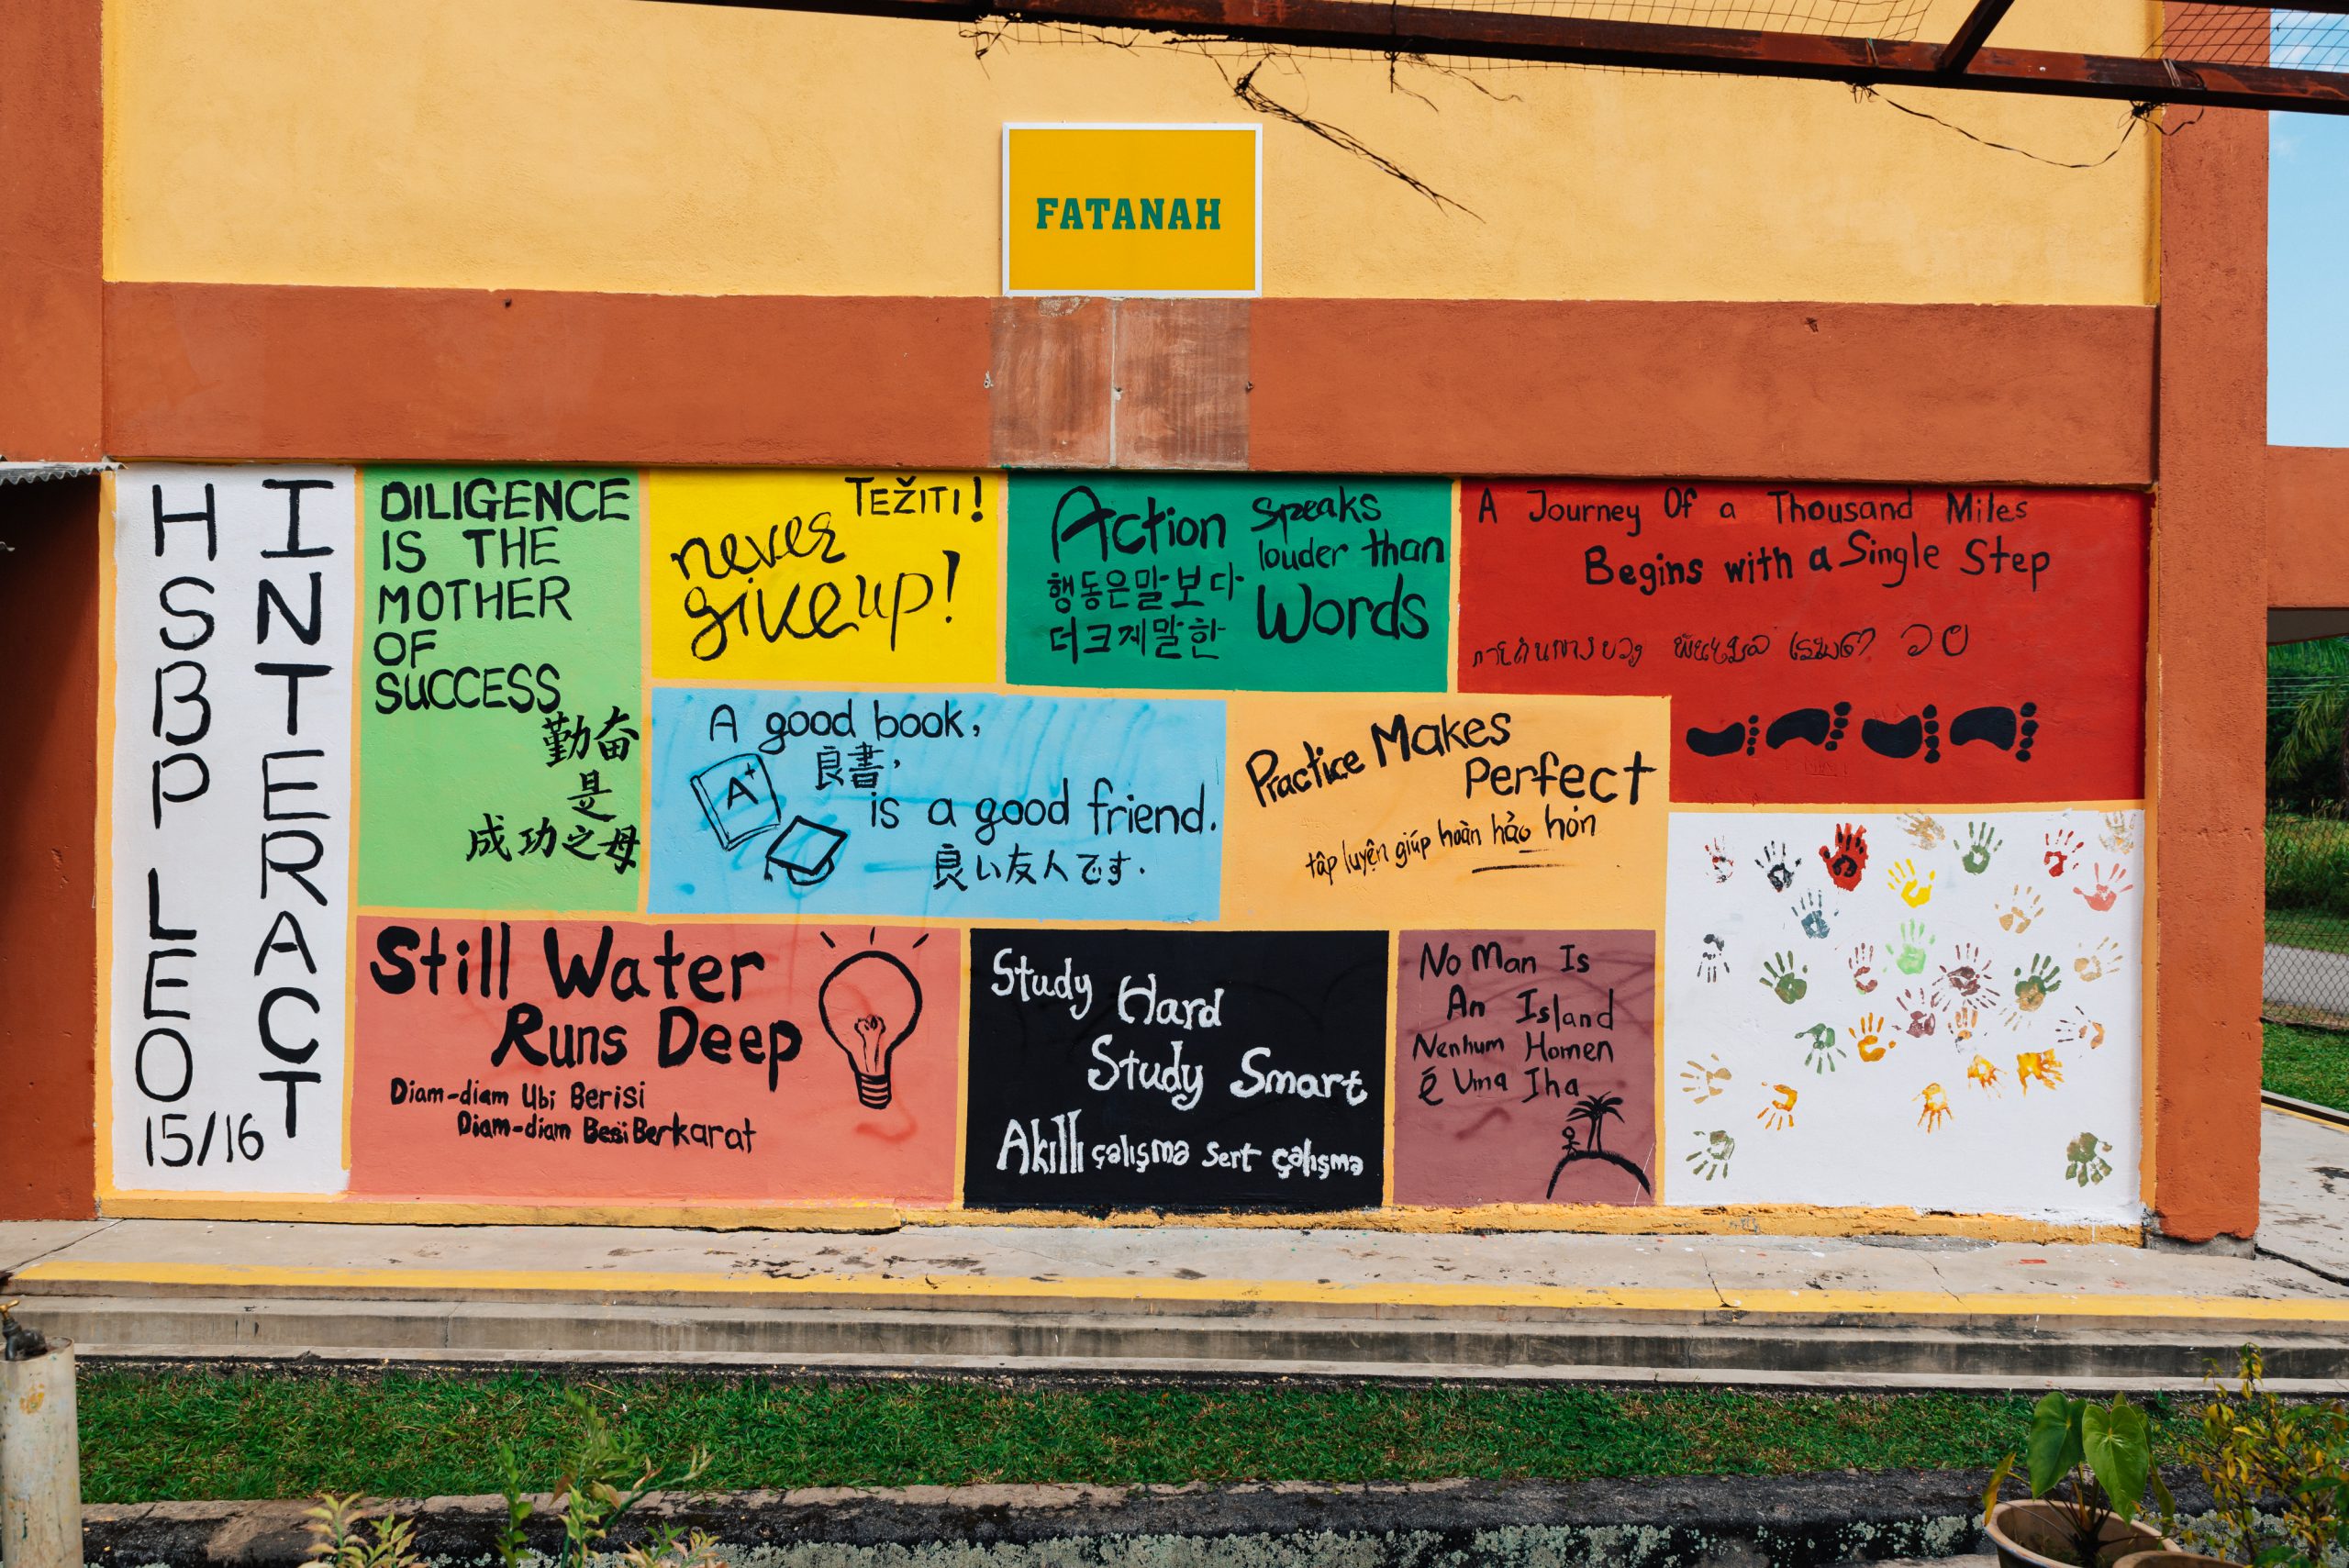 FATANAH
HSBP LEO
15/16
INTERACT
DILIGENCE
IS THE
MOTHER
OF
SUCCESS
勤奋
是
成功之母
TEŽITI!
never
give up!
Action
speaks
louder than
Words
행동은말보다
더크게말한
A Journey Of a Thousand Miles
Begins with a Single Step
A good book,
良書,
A+
is a good friend.
良い友人です.
Practice Makes
Perfect
tâp luyện giúp hoàn hảo hỏn
Still Water
Runs Deep
Diam-diam Ubi Berisi
Diam-diam Besi Berkarat
Study Hard
Study Smart
Akıllı çalışma sert çalışma
No Man Is
An Island
Nenhum Homen
é Uma Iha